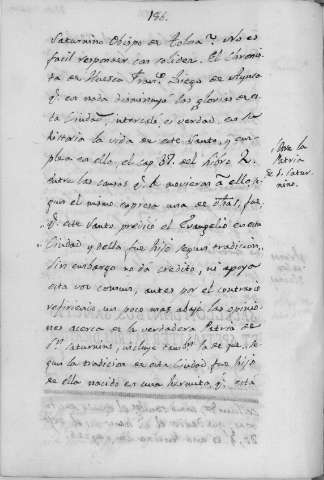 186.
Saturnino Obispo de Tolosa? No es
facil responder con solidez. El Chronis-
ta de Huesca Franco Diego de Aynsa
q. en nada disminuyó las glorias de es-
ta Ciudad, intercaló es verdad, en la
Historia la vida de este Santo, y em-
plea en ello el cap. 37. del libro 2.
entre las causas q. le movieran a ello, se-
gun el mismo expresa una de ellas, fue
q. este Santo predicó el Evangelio en esta
Ciudad y della fue hijo segun tradicion,
sin embargo no da credito, ni apoya
esta voz comun, antes por el contrario
refiriendo un poco mas abajo las opinio-
nes acerca de la verdadera Patria de
Sn. Saturnino, incluye tambn. la de que, se-
gun la tradicion de esta Ciudad fue hijo
de ella nacido en una hermita, q. está
Sobre la
Patria
de S. Satur-
nino.